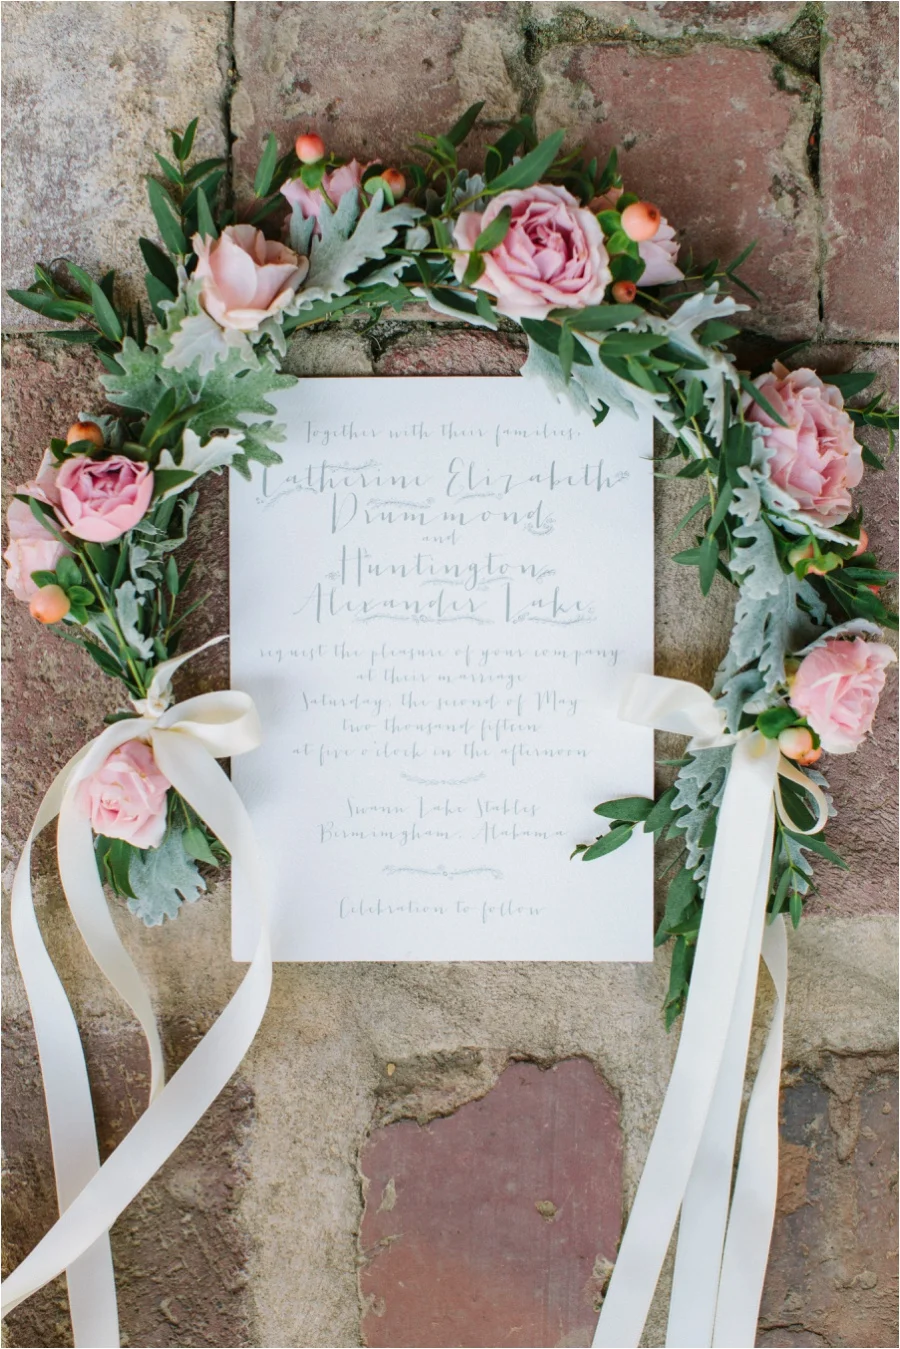 Together with their families,
Catherine Elizabeth
Drummond
and
Huntington
Alexander Lake
request the pleasure of your company
at their marriage
Saturday, the second of May
two thousand fifteen
at five o'clock in the afternoon
Swann Lake Stables
Birmingham, Alabama
Celebration to follow